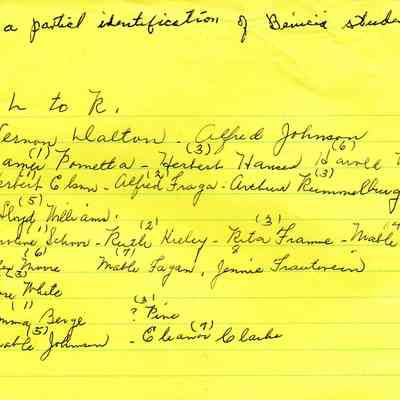 a partial identification of Benicia stude
L to R.
Vernon Dalton - Alfred Johnson
(1) (3) (6)
Pometta - Herbert Hansen Harold
(2) (3)
Herbert Elam - Alfred Fraga - Arthur Rummelburg
(5)
Lloyd Williams.
(1) (2) (3) (4
Schoor - Ruth Kieley - Rita Frame - Mable
(6) (7) ?
Moore Mable Fagan, Jennie Trautwein
(3)
White
(1) (3)
Emma Berge ? Pine
(5) (7)
Mable Johnson - Eleanor Clarke